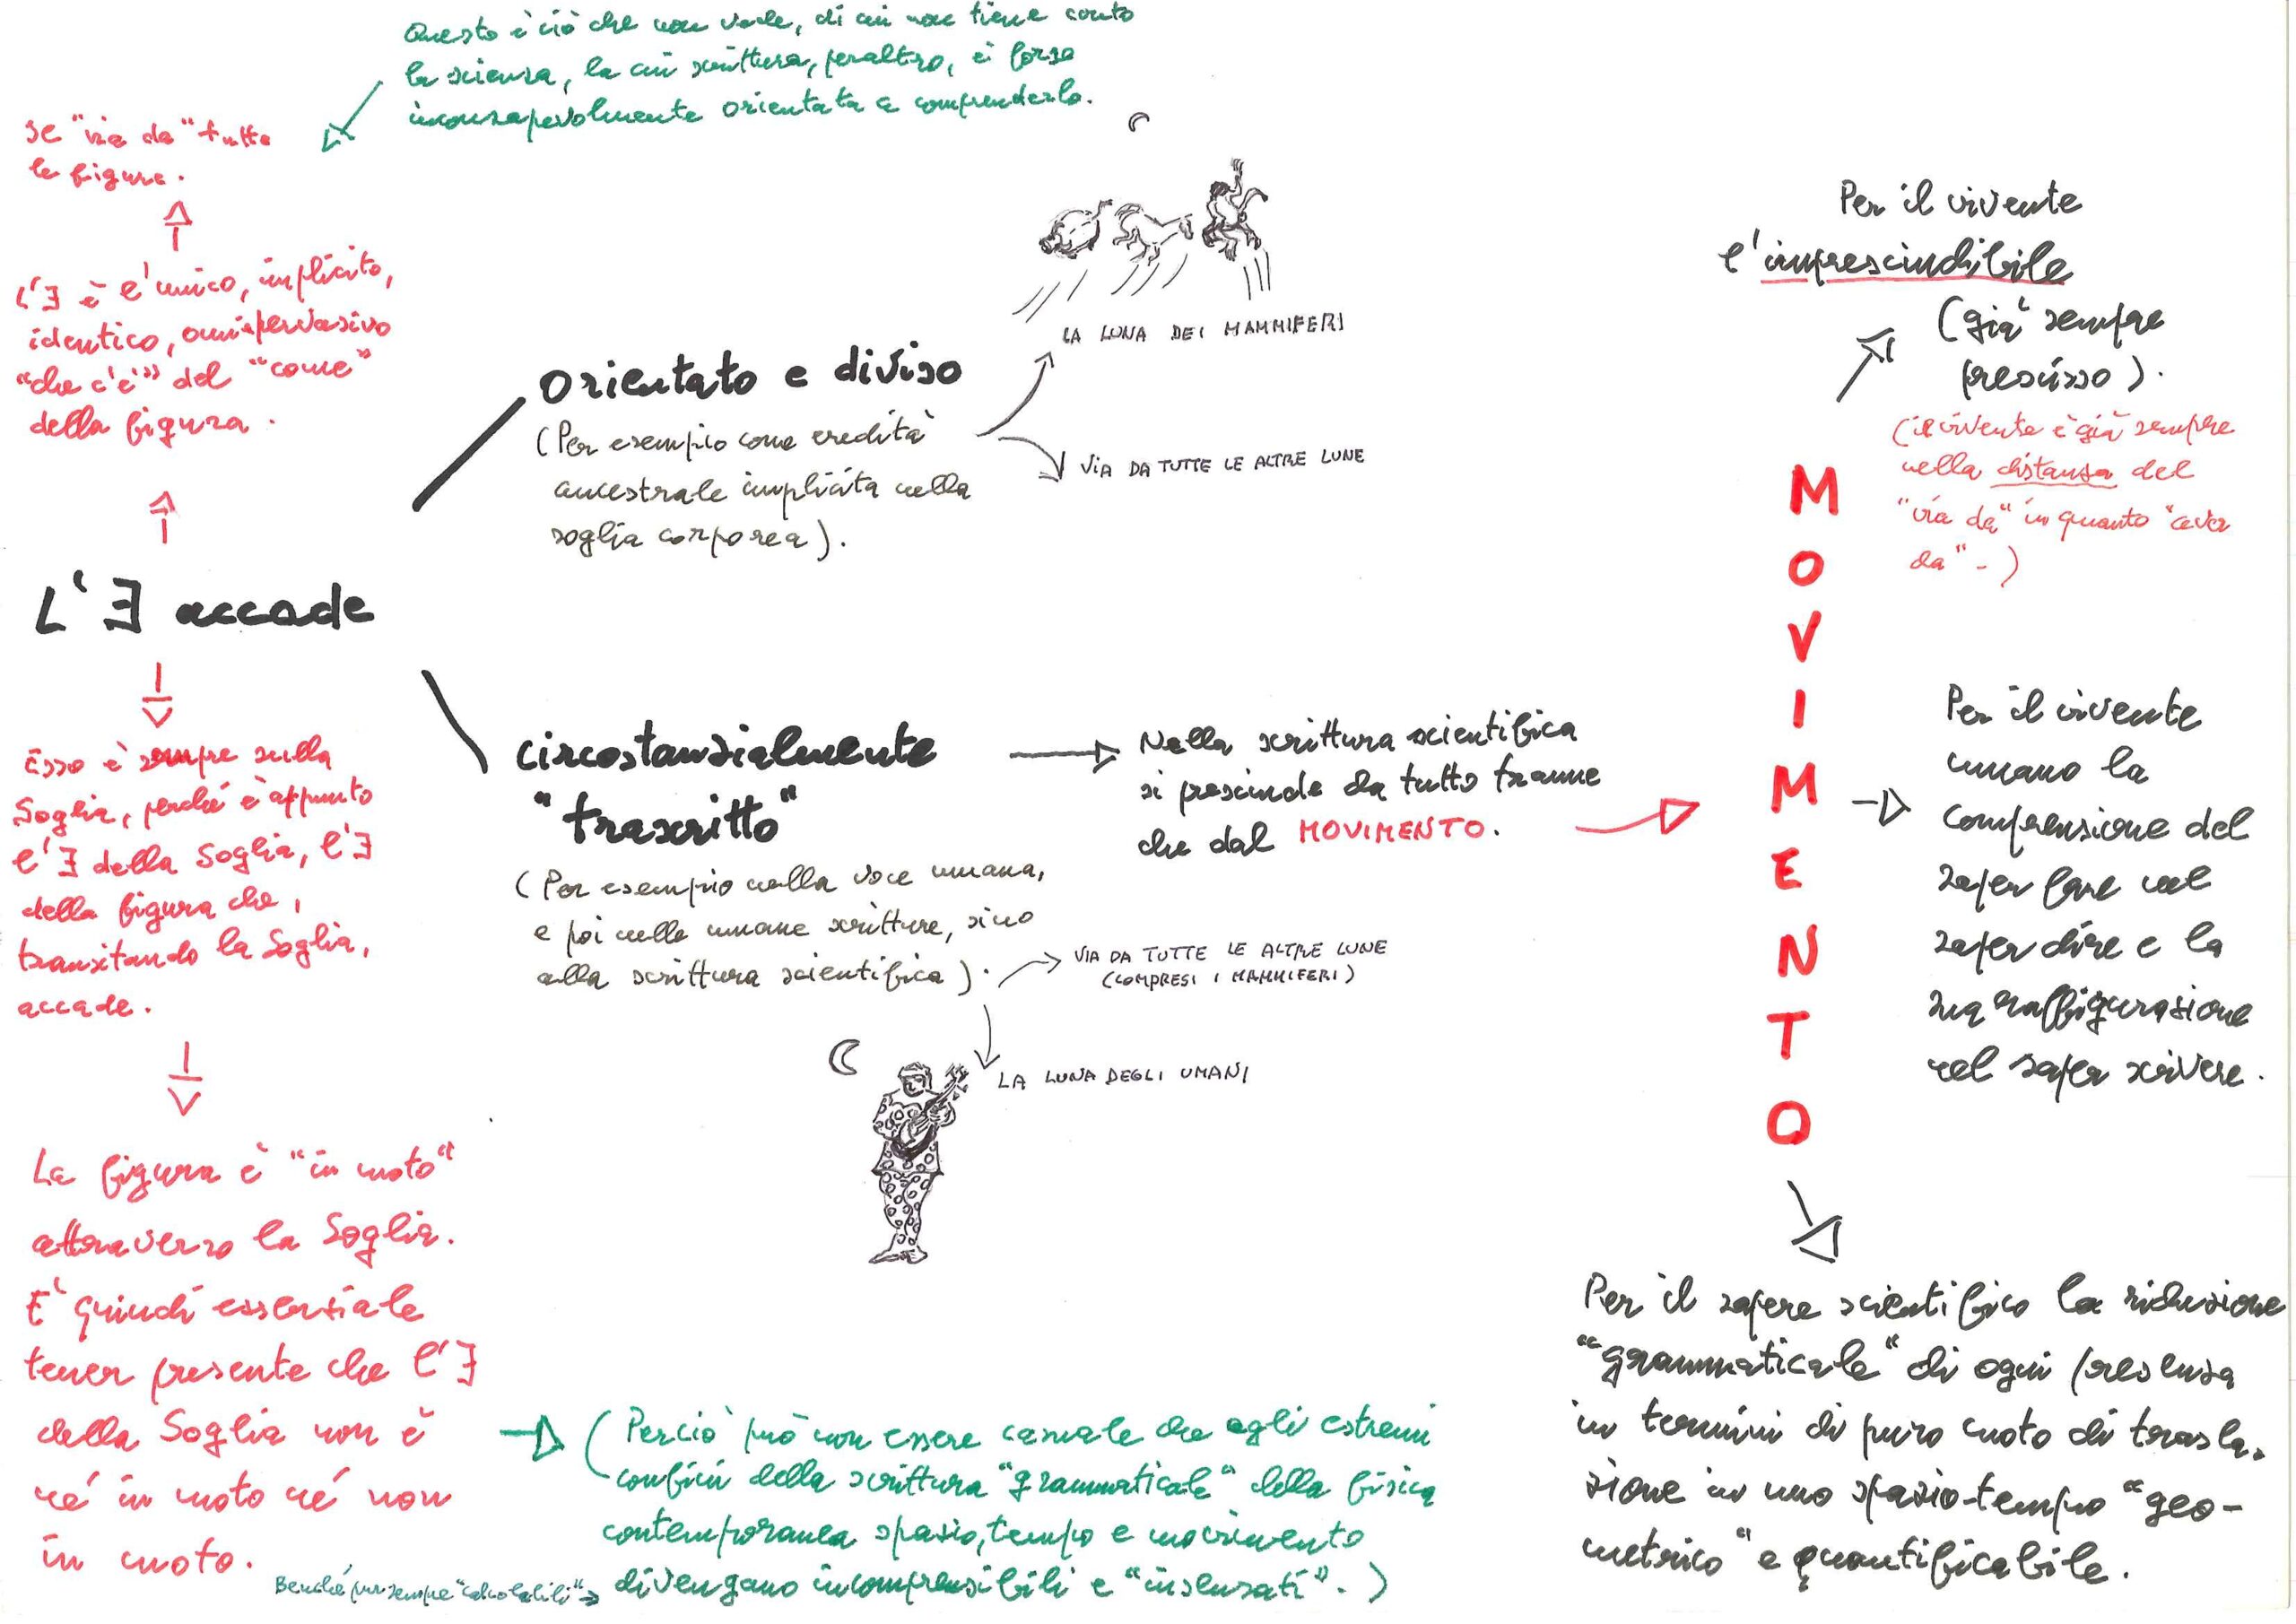 Questo è ciò che non vede, di cui non tiene conto
la scienza, la cui scrittura, peraltro, è forse
inconsapevolmente orientata a comprenderlo.
se "via da" tutte
le figure.
L'∃ è l'unico, implicito,
identico, onnipervasivo
"che c'è" del "come"
della figura.
L'∃ accade
Esso è sempre sulla
Soglia, perché è appunto
l'∃ della Soglia, l'∃
della figura che,
transitando la Soglia,
accade.
La figura è "in moto"
attraverso la Soglia.
E' quindi essenziale
tener presente che l'∃
della Soglia non è
né in moto né non
in moto.
Orientato e diviso
(Per esempio come eredità
ancestrale implicita nella
soglia corporea).
LA LUNA DEI MAMMIFERI
VIA DA TUTTE LE ALTRE LUNE
circostanzialmente
"trascritto"
(Per esempio nella voce umana,
e poi nelle umane scritture, sino
alla scrittura scientifica).
VIA DA TUTTE LE ALTRE LUNE
(COMPRESI I MAMMIFERI)
LA LUNA DEGLI UMANI
Nella scrittura scientifica
si prescinde da tutto tranne
che dal MOVIMENTO.
(Perciò può non essere casuale che agli estremi
confini della scrittura "grammaticale" della fisica
contemporanea spazio, tempo e movimento
divengano incomprensibili e "insensati".)
Benché pur sempre "calcolabili"
MOVIMENTO
Per il vivente
l'imprescindibile
(già sempre
prescisso).
(il vivente è già sempre
nella distanza del
"via da" in quanto "aver
da".)
Per il vivente
umano la
comprensione del
saper fare nel
saper dire e la
sua raffigurazione
nel saper scrivere.
Per il sapere scientifico la riduzione
"grammaticale" di ogni presenza
in termini di puro moto di trasla-
zione in uno spazio-tempo "geo-
metrico" e quantificabile.